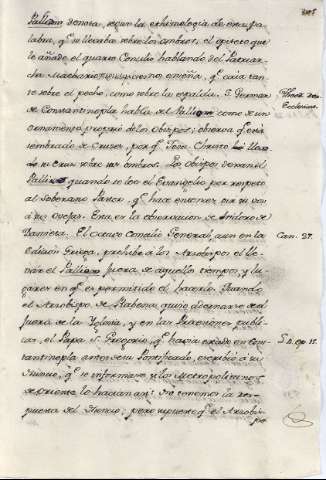 Pallium denota, segun la ethimologia de esta pa-
labra, q.e se llevaba sobre los ombros; el epiteto que
le añade el quarto Concilio hablando del Patriar-
ca Macbario, enseña, q.e caia tan-
to sobre el pecho, como sobre la espalda. S. German
de Constantinopla habla del Pallium como de un
ornamento proprio de los Obispos; observa q.e está
sembrado de Cruces, por q.e Jesu Christo llevó
su Cruz sobre sus ombros. Los Obispos dexan el
Pallium quando se lee el Evangelio por respeto
al soberano Pastor, q.e hace entonces oir su voz
á sus ovejas. Esta es la observacion de Isidoro de
Damieta. El octavo Concilio General, aun en la
Edicion Griega, prohibe á los Arzobispos el lle-
var el Pallium fuera de aquellos tiempos, y lu-
gares en q.e es permitido el hacerlo. Quando
el Arzobispo de Rabena quiso adornarse de él
fuera de la Yglesia, y en las Procesiones publi-
cas, el Papa S. Gregorio, q.e havia estado en Cons-
tantinopla antes de su Pontificado, escribió á su
Nuncio, q.e se informase si los Metropolitanos
de oriente lo hacian asi. No tenemos la res-
puesta del Nuncio; pero supuesto q.e el Arzobis-
po
Can. 27.